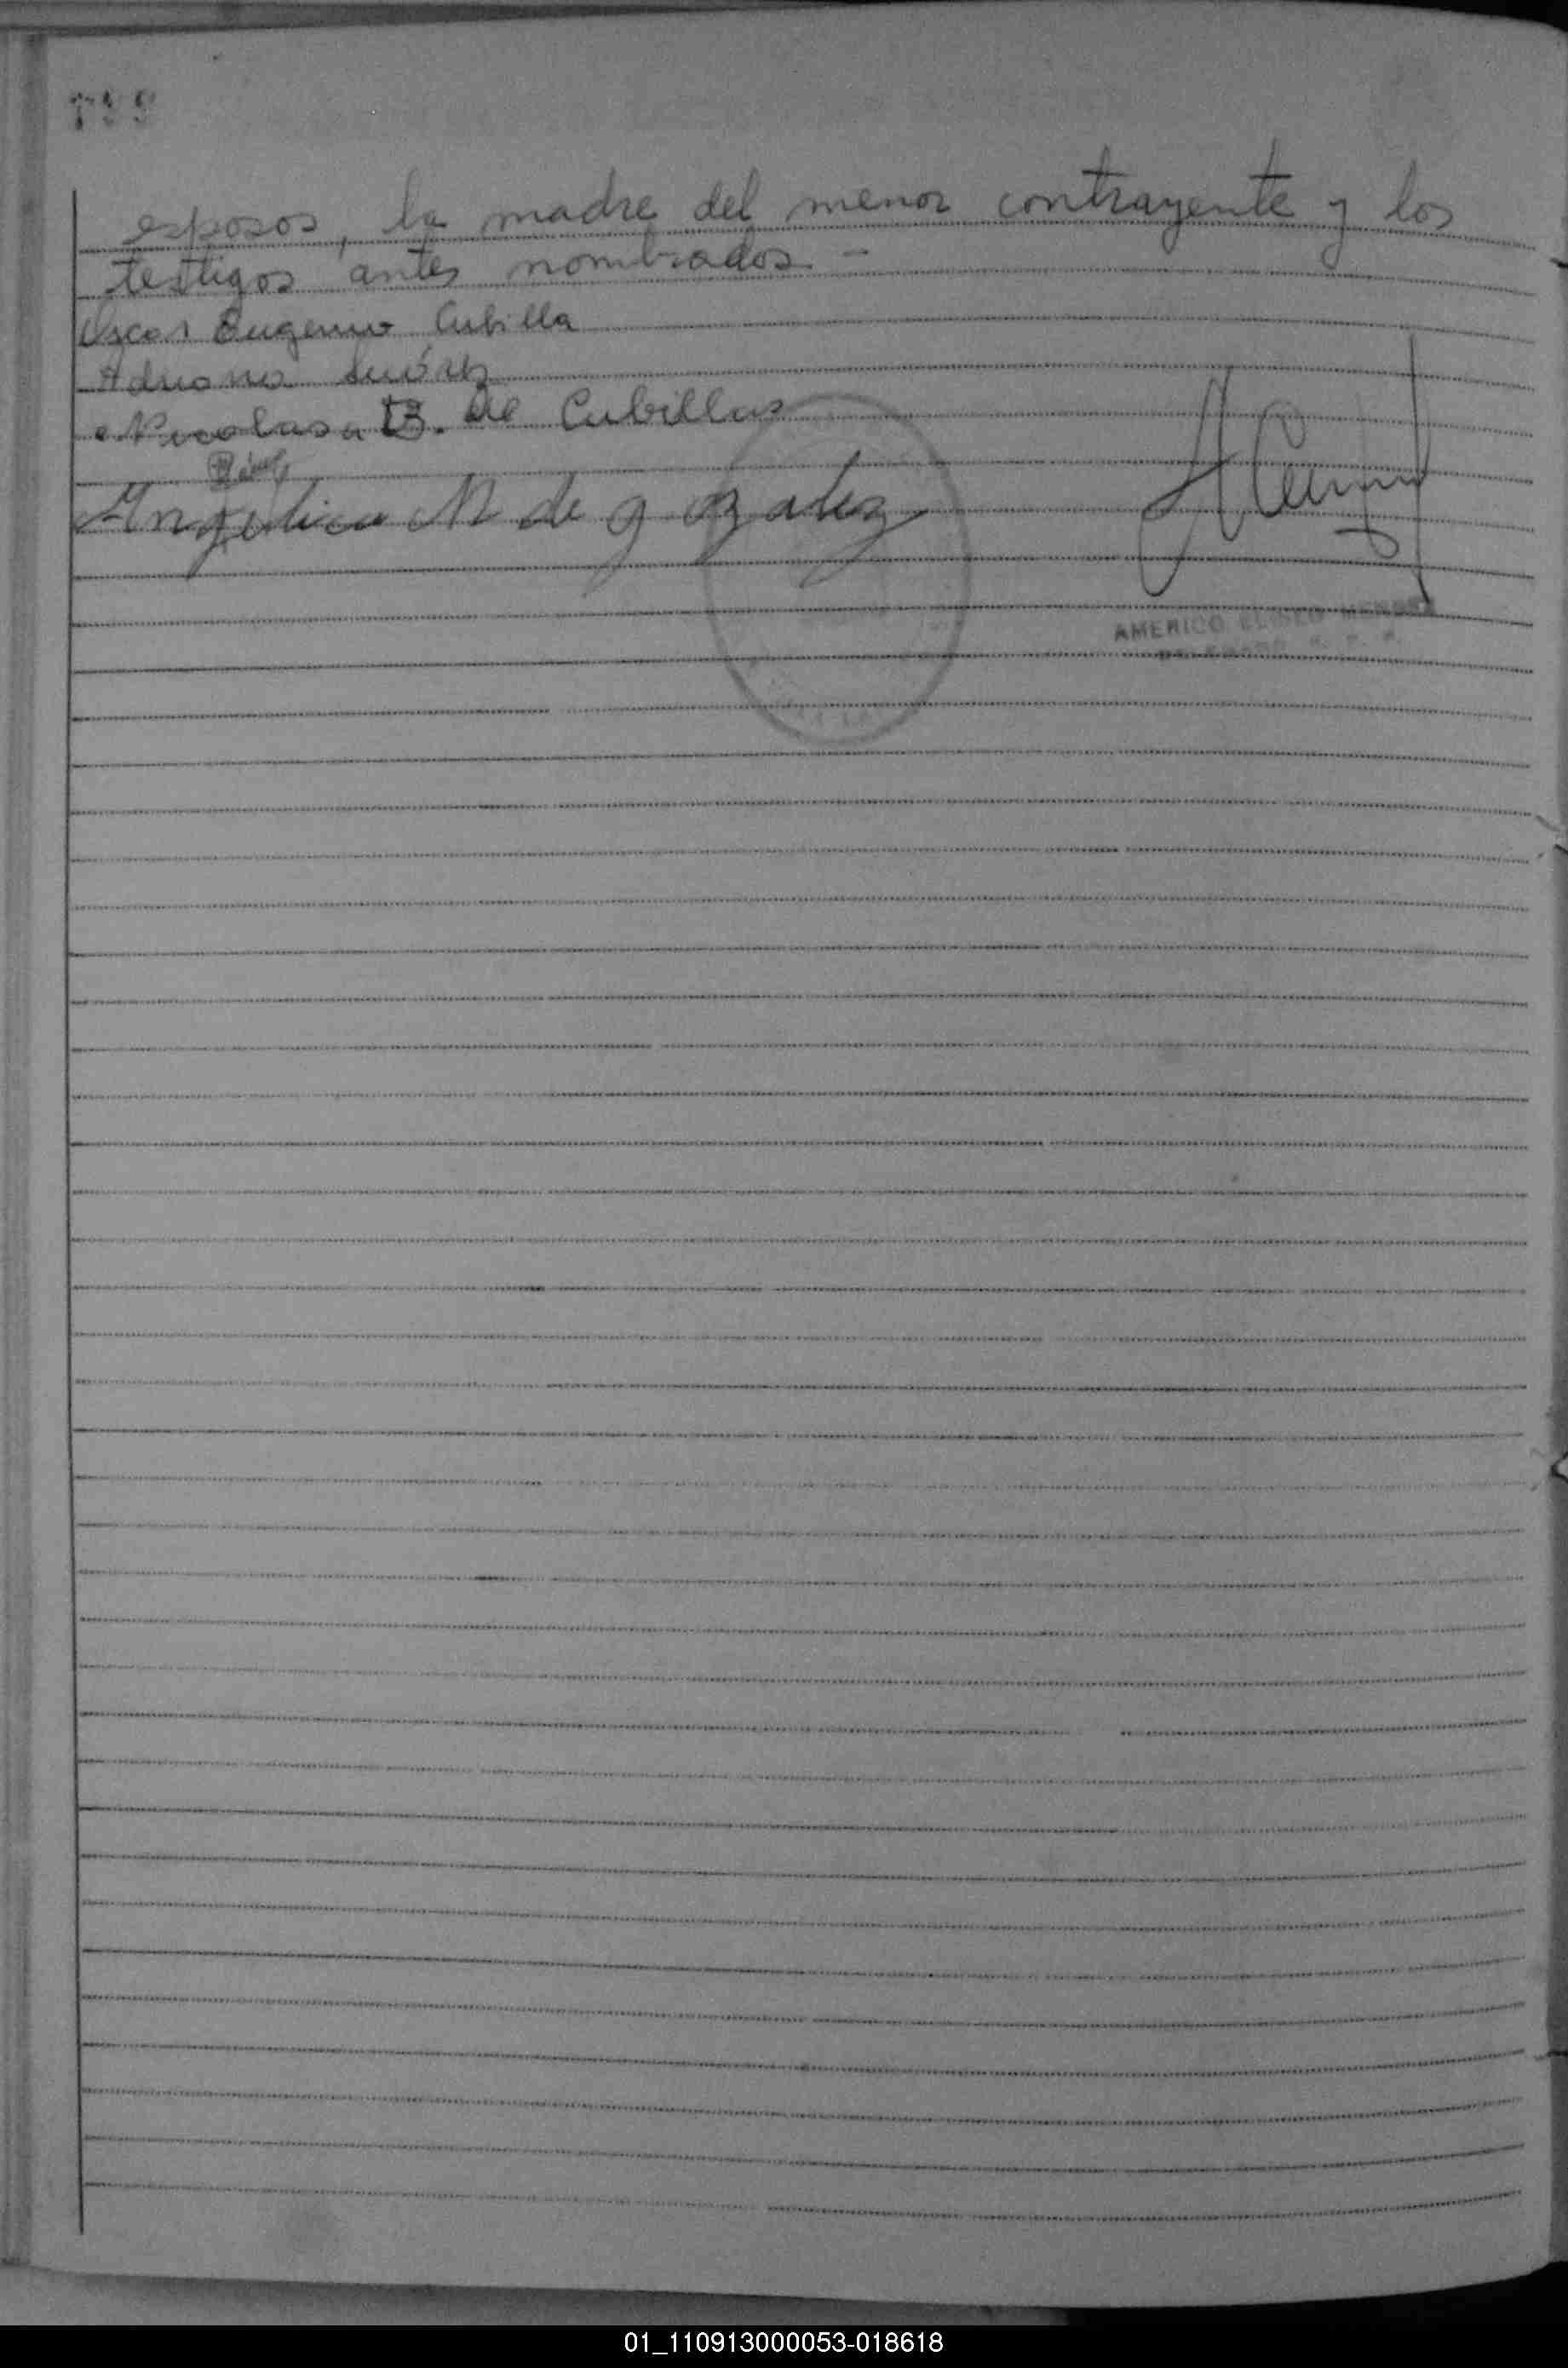 esposos, la madre del menor contrayente y los
testigos antes nombrados. -
Oscar Eugenio Cubilla
Adriana Suárez
Nicolasa B. de Cubillas
Angelica N de gozalez
AMERICO ELISEO MENDEZ
01_110913000053-018618